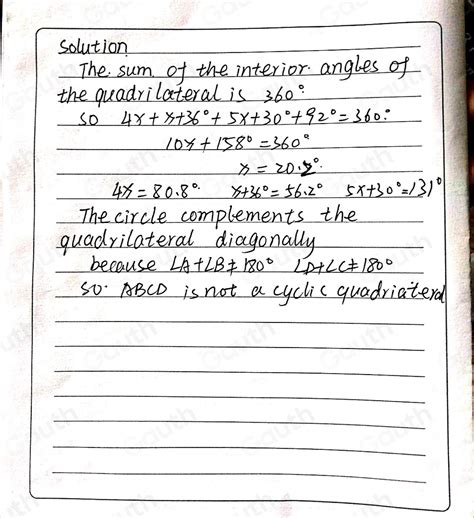 Solution
The sum of the interior angles of
the quadrilateral is 360°
so 4x+x+36°+5x+30°+92°=360°
10x+158°=360°
x=20.2°
4x=80.8° x+36°=56.2° 5x+30°=131°
The circle complements the
quadrilateral diagonally
because ∠A+∠B≠180° ∠D+∠C≠180°
so. ABCD is not a cyclic quadriateral